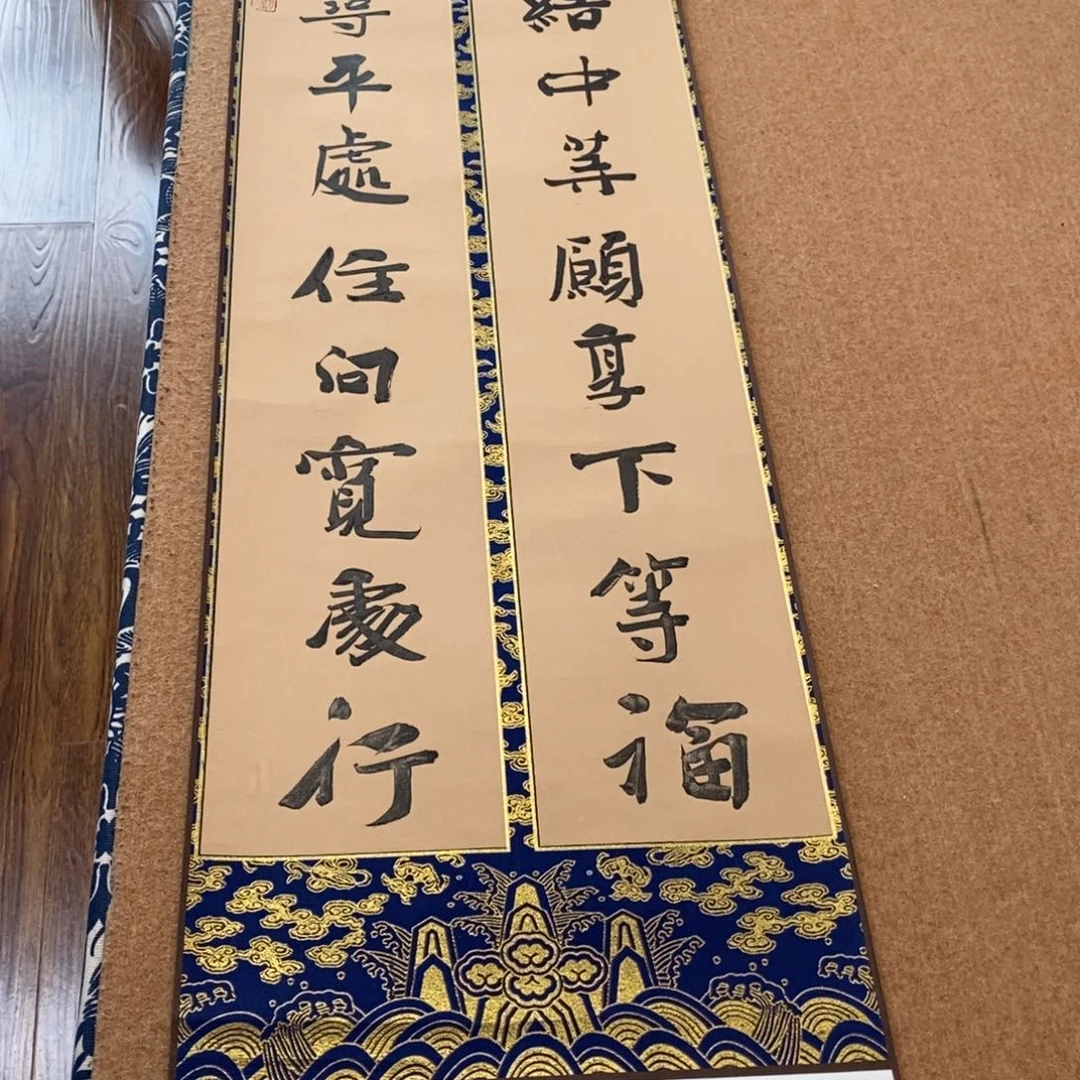 結中等願享下等福
尋平處住向寬處行